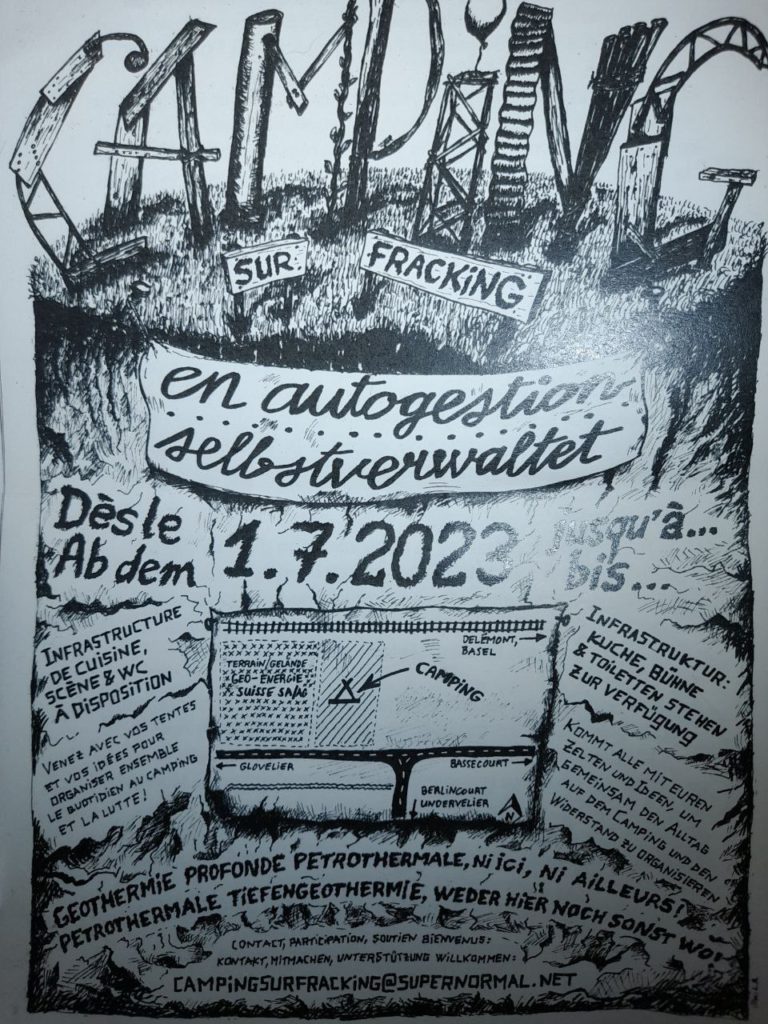 CAMPING
SUR FRACKING
en autogestion
selbstverwaltet
Dès le
Ab dem
1.7.2023
jusqu'à...
bis...
INFRASTRUCTURE
DE CUISINE,
SCÈNE & WC
À DISPOSITION
VENEZ AVEC VOS TENTES
ET VOS IDÉES POUR
ORGANISER ENSEMBLE
LE QUOTIDIEN AU CAMPING
ET LA LUTTE!
DELÉMONT,
BASEL
TERRAIN/GELÄNDE
GEO-ENERGIE
SUISSE SA/AG
CAMPING
GLOVELIER
BASSECOURT
BERLINCOURT
UNDERVELIER
N
INFRASTRUKTUR:
KÜCHE, BÜHNE
& TOILETTEN STEHEN
ZUR VERFÜGUNG
KOMMT ALLE MIT EUREN
ZELTEN UND IDEEN, UM
GEMEINSAM DEN ALLTAG
AUF DEM CAMPING UND DEN
WIDERSTAND ZU ORGANISIEREN
GEOTHERMIE PROFONDE PETROTHERMALE, NI ICI, NI AILLEURS!
PETROTHERMALE TIEFENGEOTHERMIE, WEDER HIER NOCH SONST WO!
CONTACT, PARTICIPATION, SOUTIEN BIENVENUS:
KONTAKT, MITMACHEN, UNTERSTÜTZUNG WILLKOMMEN:
CAMPINGSURFRACKING@SUPERNORMAL.NET